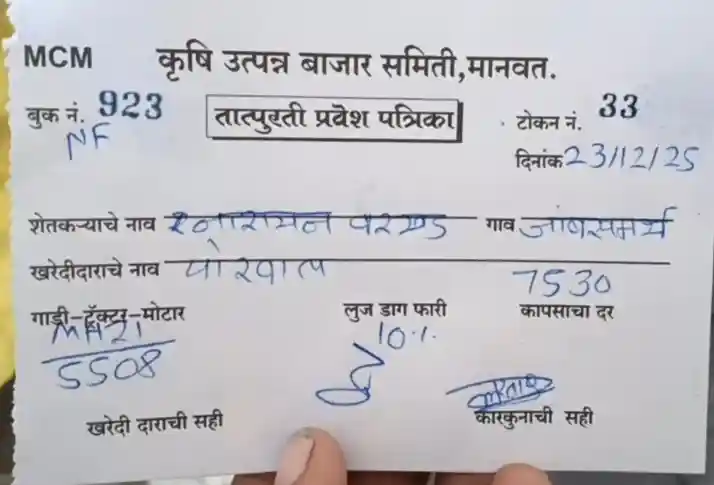 MCM कृषि उत्पन्न बाजार समिती,मानवत.
बुक नं. 923 तात्पुरती प्रवेश पत्रिका टोकन नं. 33
NF
दिनांक 23/12/25
शेतकऱ्याचे नाव गाव
खरेदीदाराचे नाव 7530
गाडी-ट्रॅक्टर-मोटार लुज डाग फारी कापसाचा दर
MH21 10%
5508
खरेदी दाराची सही कारकुनाची सही